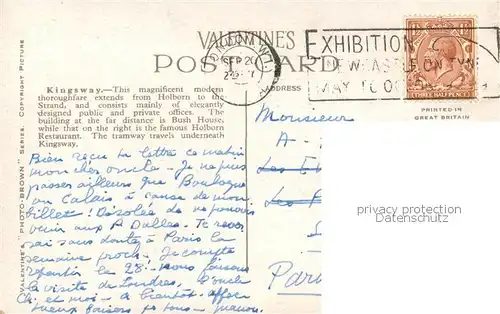 VALENTINES
POSTCARD
LONDON W.1.
SEP 20
EXHIBITION
NEWCASTLE ON TYNE
MAY TO OC
PRINTED IN
GREAT BRITAIN
Kingsway.—This magnificent modern
thoroughfare extends from Holborn to the
Strand, and consists mainly of elegantly
designed public and private offices. The
building at the far distance is Bush House,
while that on the right is the famous Holborn
Restaurant. The tramway travels underneath
Kingsway.
VALENTINE'S "PHOTO-BROWN" SERIES. COPYRIGHT PICTURE
Bien reçu ta lettre ce matin
mon cher oncle - Je ne puis
passer ailleurs que Boulogne
ou Calais à cause de mon
billet! Désolée de ne pouvoir
venir aux P Dalles. Te
sans doute à Paris la
semaine proch. Je compte
repartir le 28. Nous faisons
la visite de Londres, l'oncle
Ch. et moi - A bientôt. affec
tueux baisers
Monsieur
A -
Les
Les
Pari
privacy protection